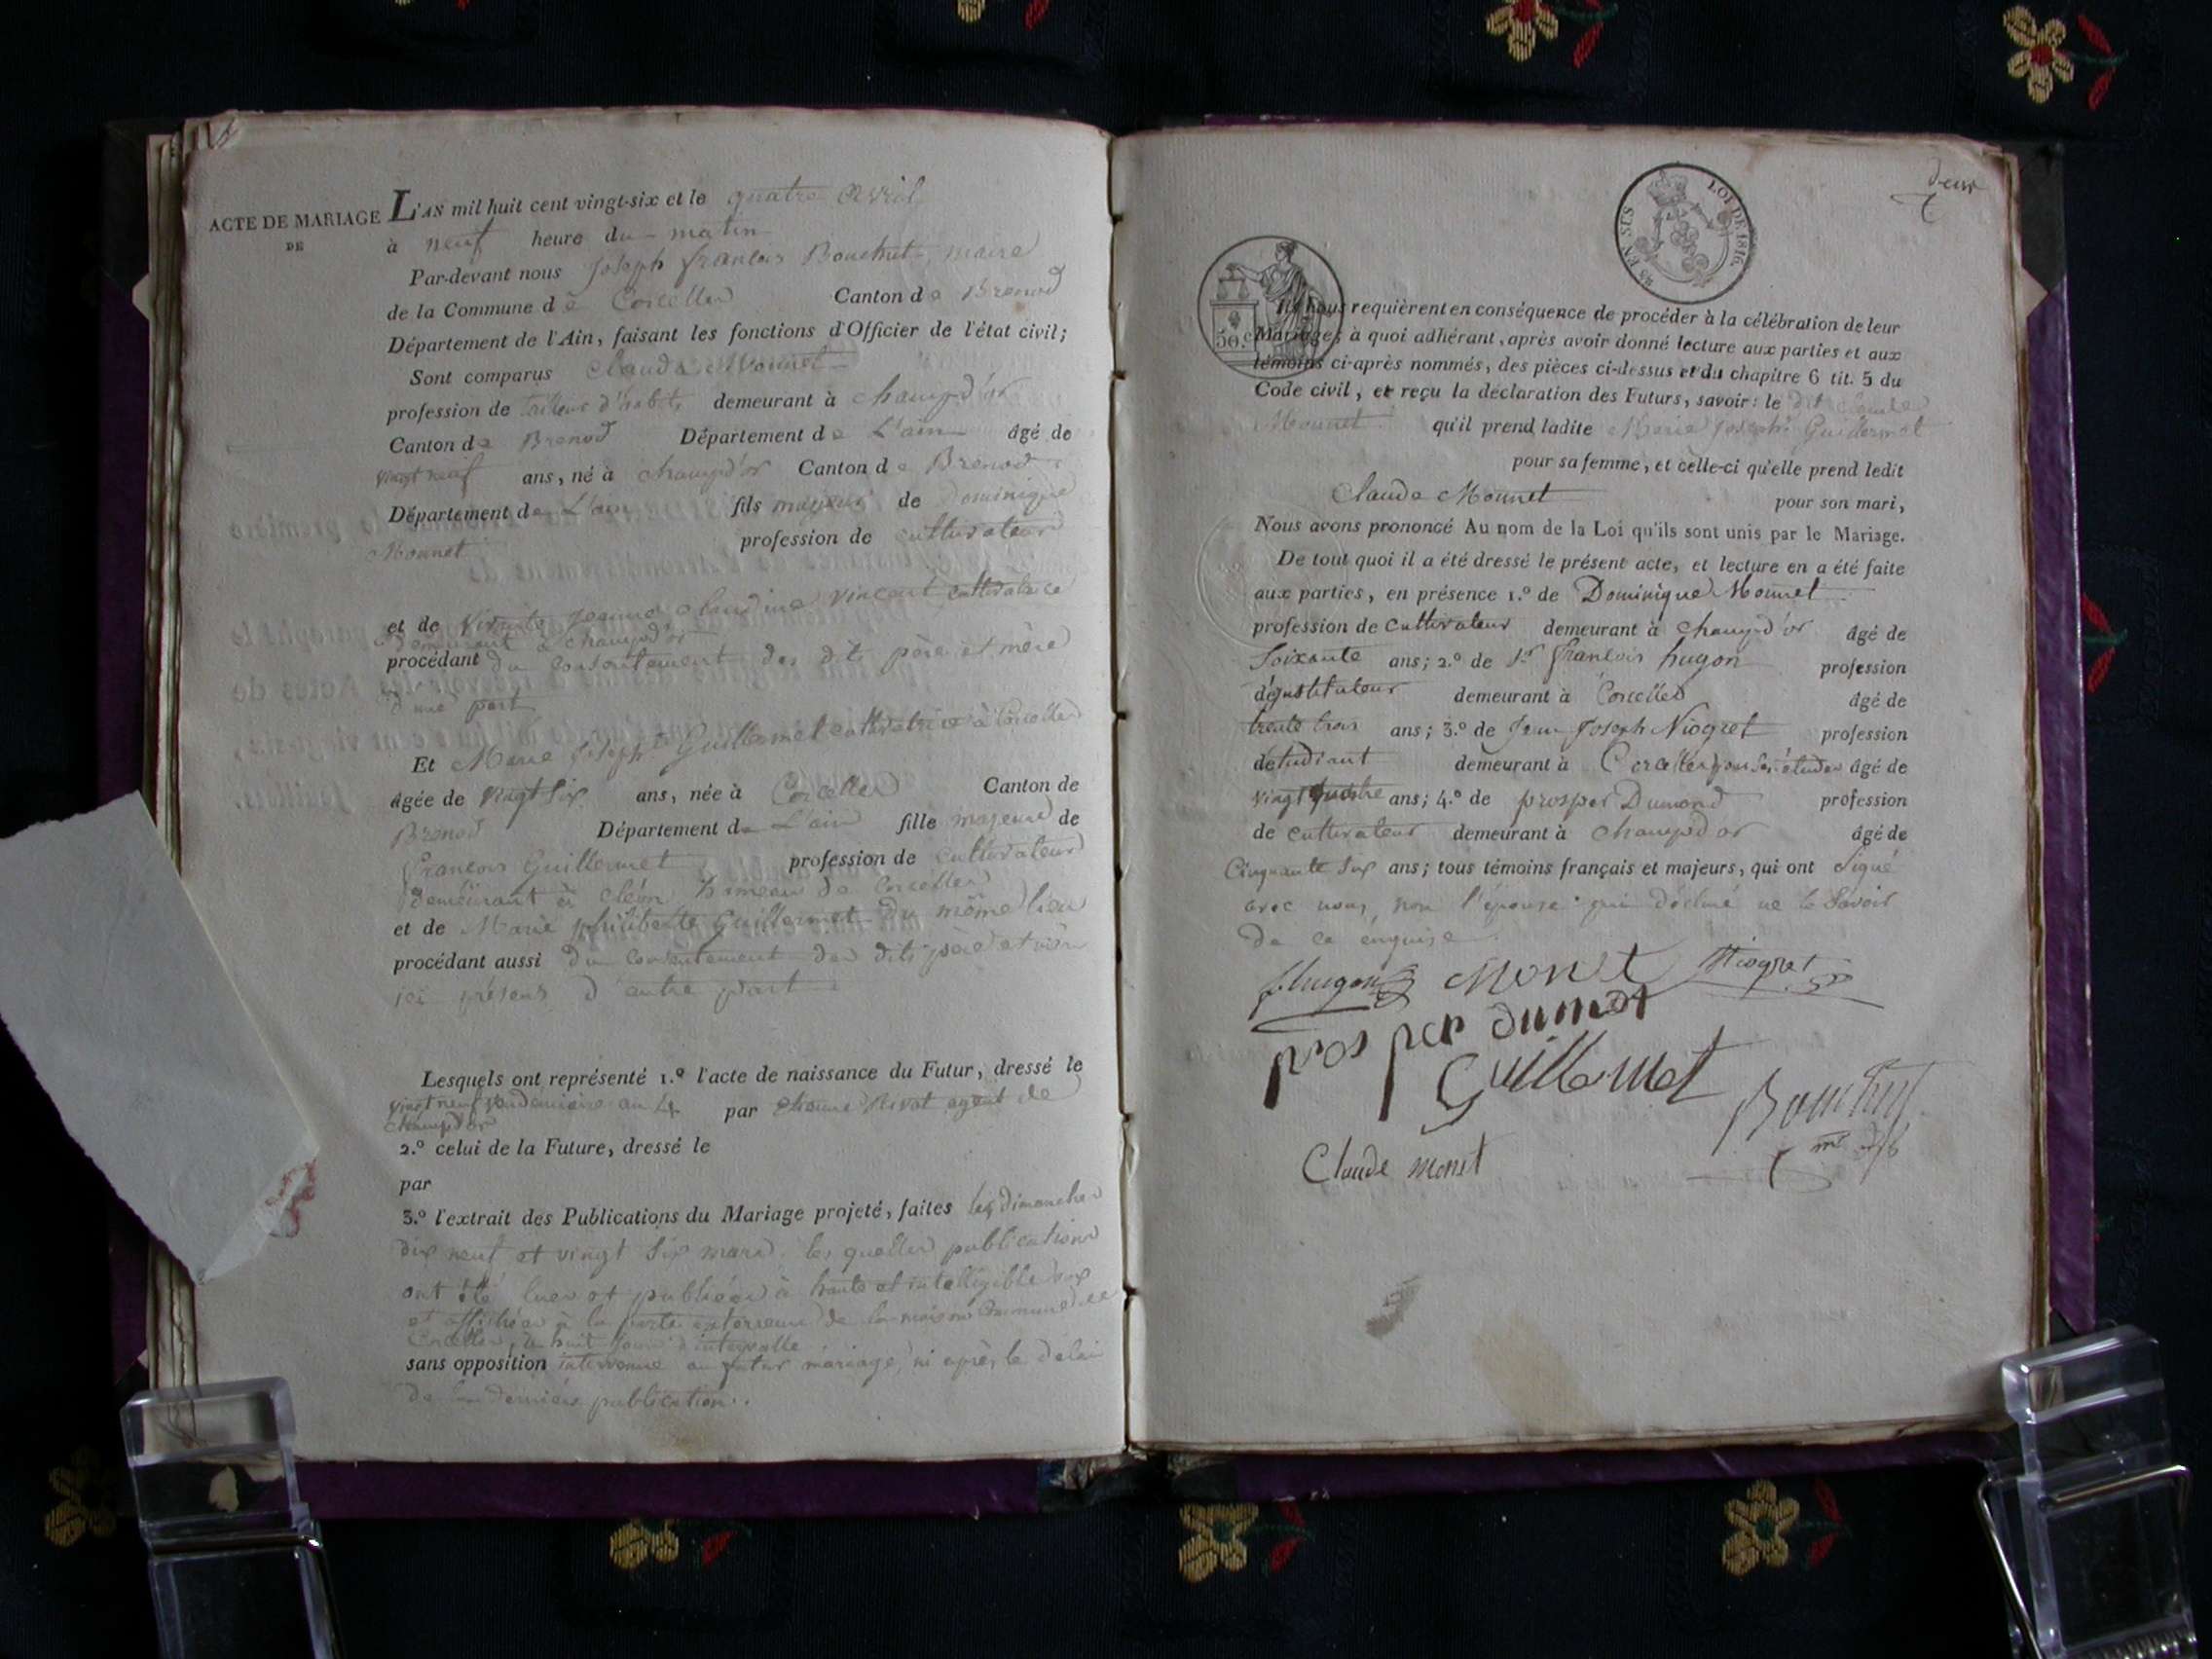 ACTE DE MARIAGE
DE
L'AN mil huit cent vingt-six et le quatre avril
à neuf heure du matin
Par-devant nous Joseph françois Bouchut, maire
de la Commune de Corcelles Canton de Brenod
Département de l'Ain, faisant les fonctions d'Officier de l'état civil;
Sont comparus Claude Monnet
profession de tailleur d'habits demeurant à champd'or
Canton de Brenod Département de L'ain âgé de
vingt neuf ans, né à champd'or Canton de Brenod
Département de L'ain fils majeur de Dominique
Monnet profession de cultivateur
et de Jeanne Claudine Vincent cultivatrice
demeurant à champd'or
procédant du consentement des dits père et mère
d'une part
Et Marie Joseph Guillermet cultivatrice à Corcelles
âgée de vingt six ans, née à Corcelles Canton de
Brenod Département de L'ain fille majeure de
françois Guillermet profession de cultivateur
demeurant à cléon hameau de Corcelles
et de Marie philiberte Guillermet du même lieu
procédant aussi du consentement des dits père et mère
ici présens d'autre part
Lesquels ont représenté 1.º l'acte de naissance du Futur, dressé le
vingt neuf vendemiaire an 4 par Rivat agent de
champd'or
2.º celui de la Future, dressé le
par
3.º l'extrait des Publications du Mariage projeté, faites les dimanches
dix neuf et vingt six mars. les quelles publications
ont été lues et publiées à haute et intelligible voix
et affichées à la porte extérieure de la maison commune de
Corcelles, à huit jours d'intervalle
sans opposition intervenue au futur mariage, ni après le délai
de la dernière publication.
deux
LOI DE 1816.
EN SUS
50.c
Ils nous requièrent en conséquence de procéder à la célébration de leur
Mariage; à quoi adhérant, après avoir donné lecture aux parties et aux
témoins ci-après nommés, des pièces ci-dessus et du chapitre 6 tit. 5 du
Code civil, et reçu la déclaration des Futurs, savoir: le dit claude
Monnet qu'il prend ladite Marie Joseph Guillermet
pour sa femme, et celle-ci qu'elle prend ledit
Claude Monnet pour son mari,
Nous avons prononcé Au nom de la Loi qu'ils sont unis par le Mariage.
De tout quoi il a été dressé le présent acte, et lecture en a été faite
aux parties, en présence 1.º de Dominique Monnet
profession de cultivateur demeurant à champd'or âgé de
soixante ans; 2.º de Sr françois hugon profession
d'instituteur demeurant à Corcelles âgé de
trente trois ans; 3.º de Jean Joseph Niogret profession
détudiant demeurant à Corcelles pour ses études âgé de
vingt quatre ans; 4.º de prosper Dumond profession
de cultivateur demeurant à champd'or âgé de
Cinquante six ans; tous témoins français et majeurs, qui ont signé
avec nous, non l'épouse qui déclaré ne le savoir
de ce enquise.
f. hugon Monet Niogret
prosper dumont
Guillermet
Bouchut
Claude monet